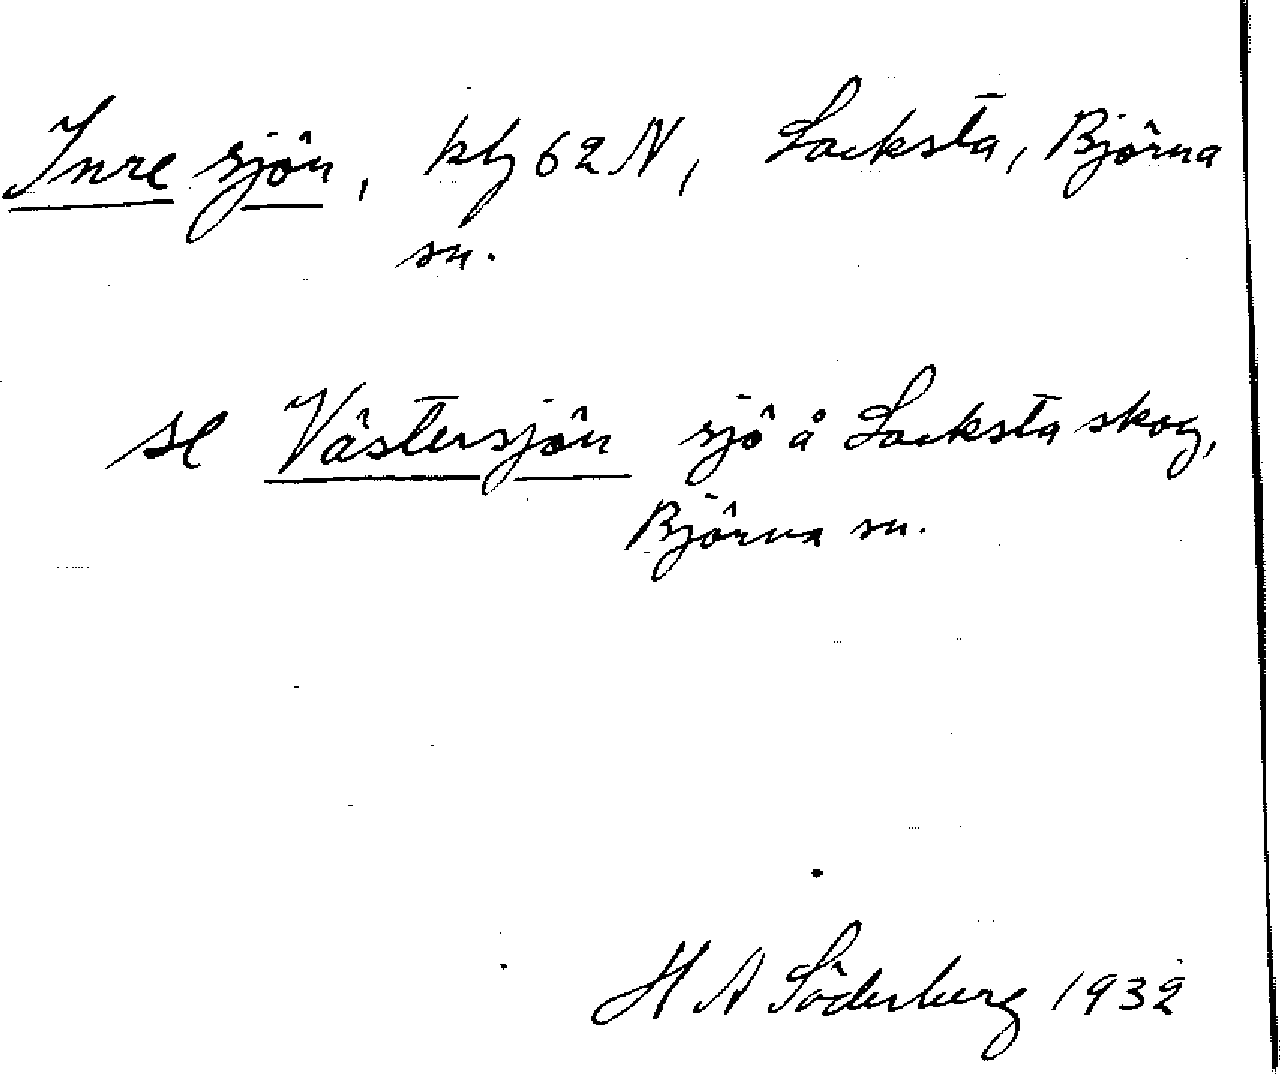 Inre sjön, kbl 62 N, Lacksta, Björna
sn.
se Västersjön sjö å Lacksta skog,
Björna sn.
H A Söderberg 1932